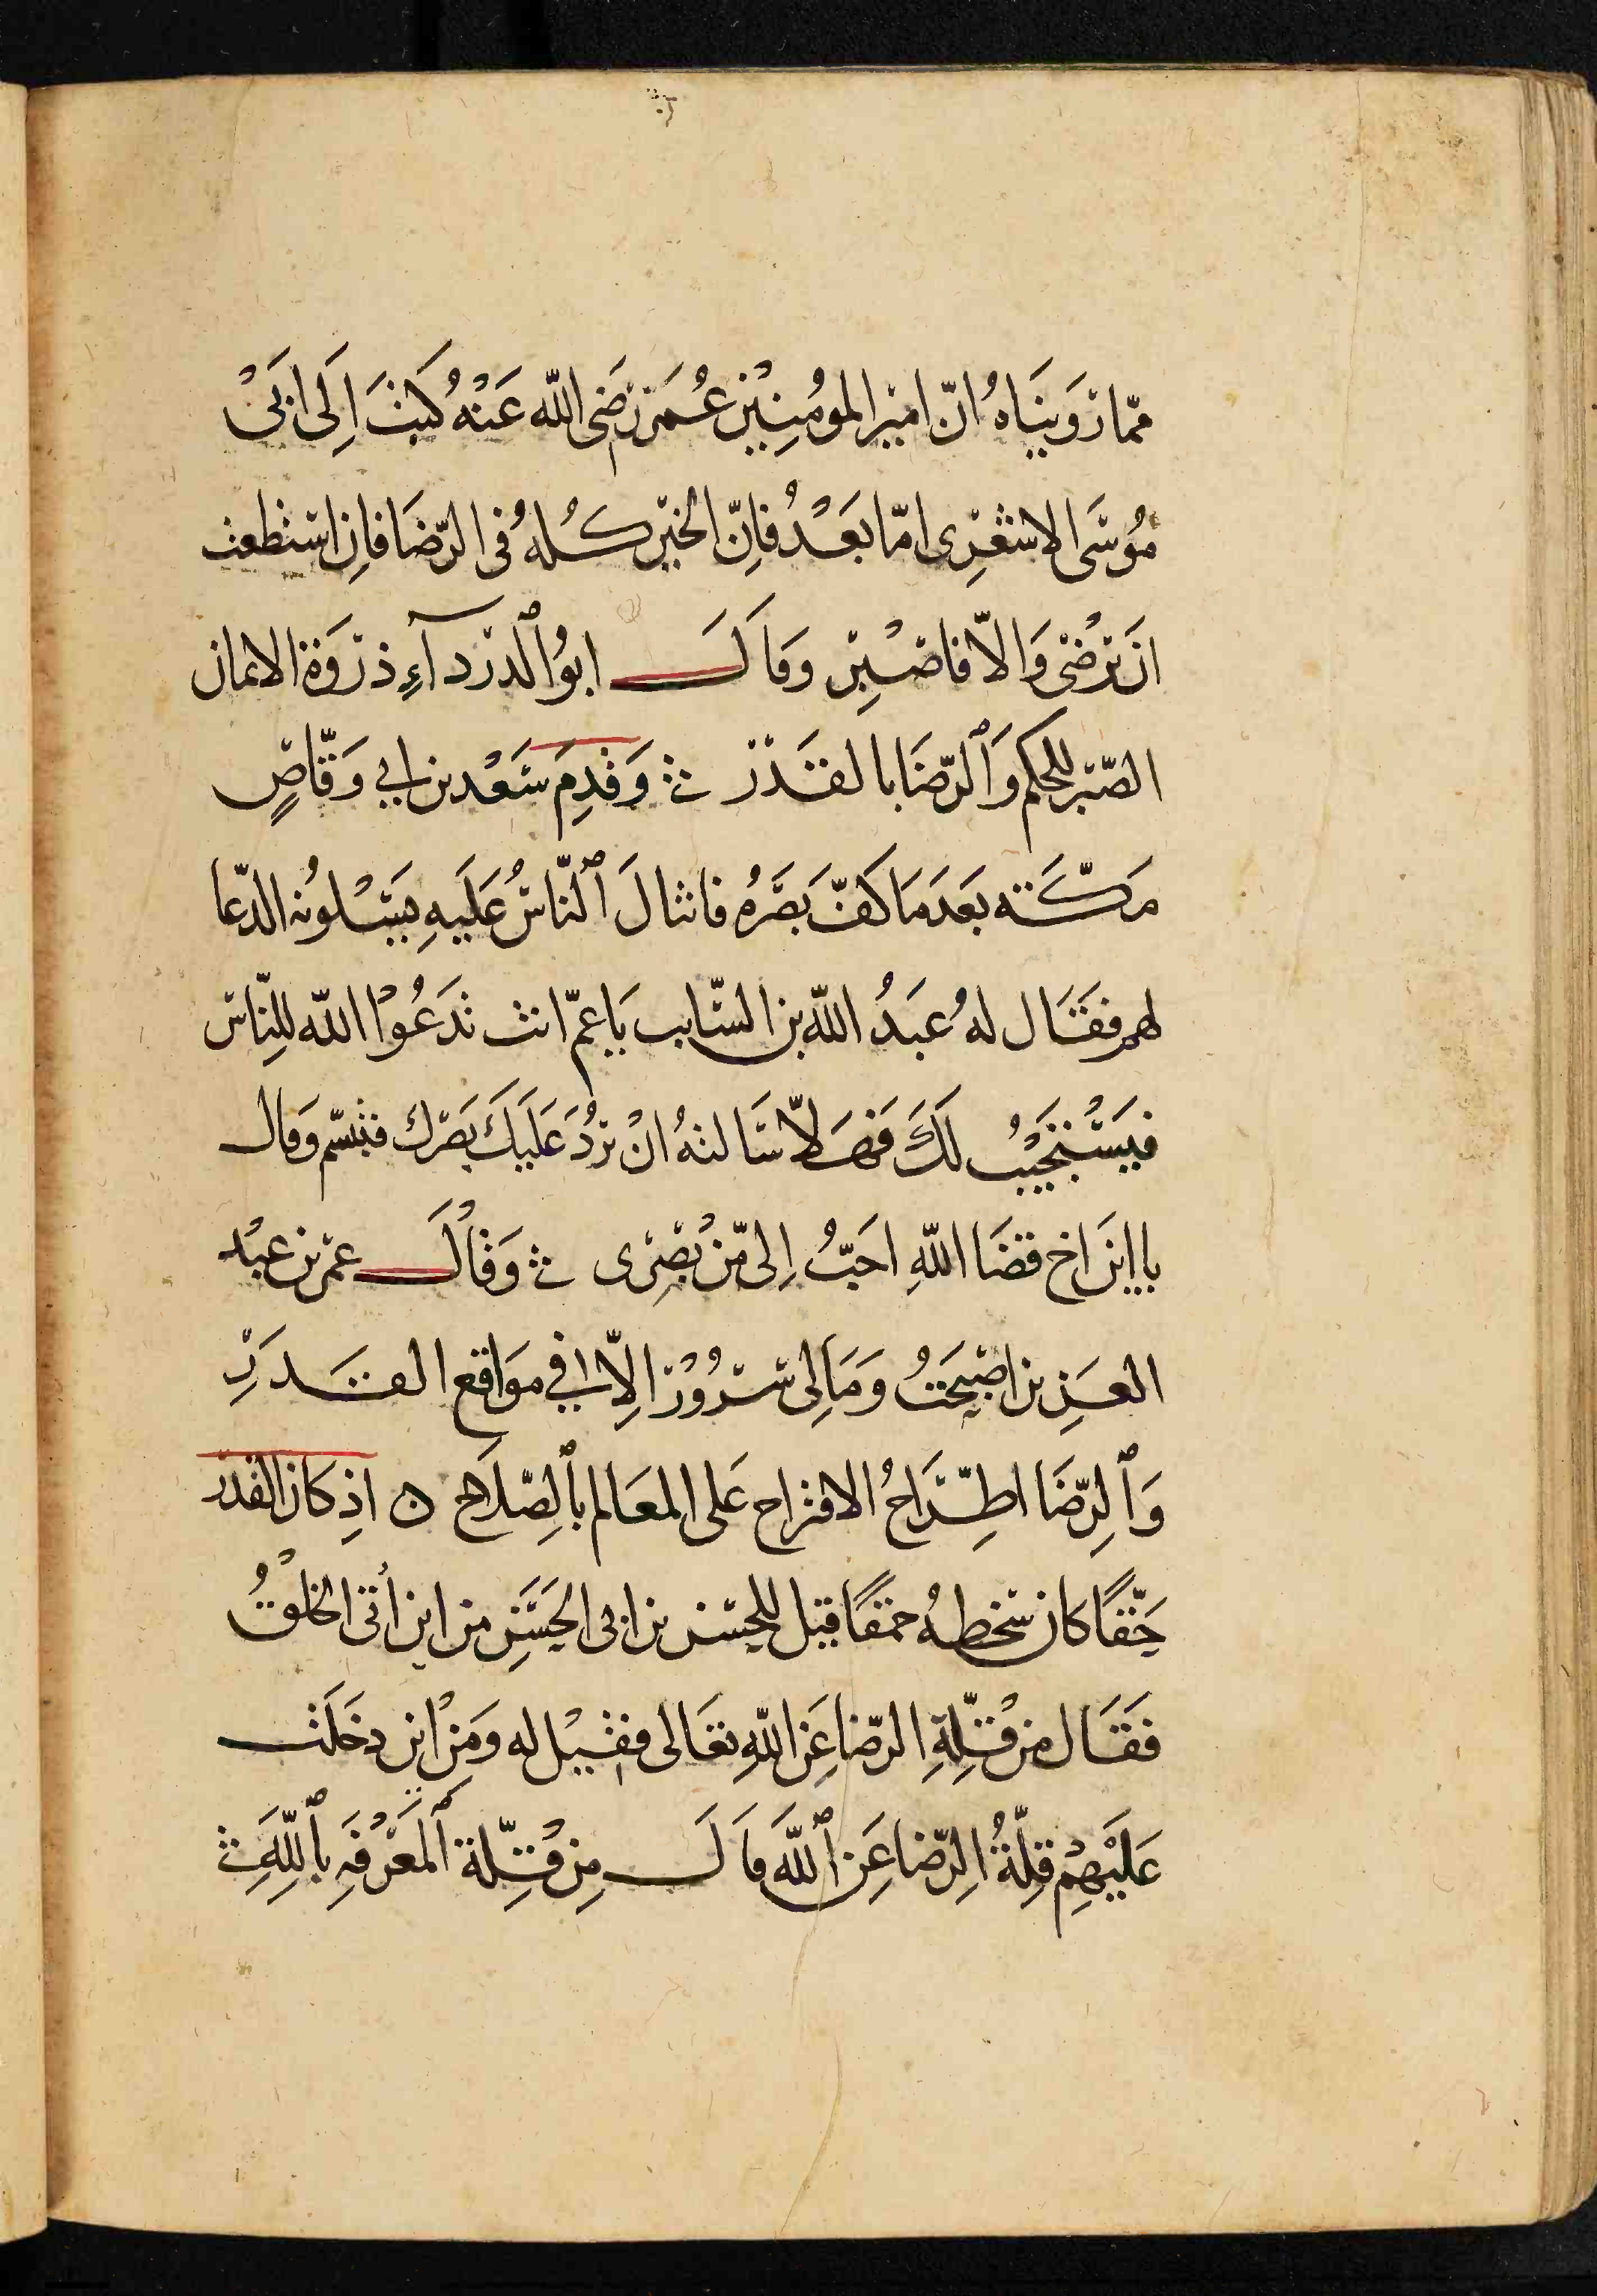 مما رَوَينَاهُ انّ امير المومُنِيْن عُمَر رَضي الله عَنْهُ كتبَ اِلَى ابَيْ
مُوسَى الاشعَرِى امّا بَعْدُ فاِنّ الخيْر كُله فى الرّضَا فاِن استطعت
انَ تَرْضَى وَالّا فاصْبِر وَقالَ ابوُ ٱلدرْدآءِ ذرْوَة الايمان
الصّبر للحكم وَٱلرّضَا بالقَدَرْ وَقدِمَ سَعْد بن ابي وَقّاصٍ
مَكّة بَعَدَ مَا كَفّ بَصَرهُ فانثالَ ٱلنّاسُ عَلَيهِ يَسَْلونُه الدّعا
لهم فَقَال لهُ عَبدُ الله بن السّايب يَا عمّ انت تَدَعُوْا الله للِنّاس
فيَسَتْجَيْبُ لَكَ فَهَلاّ سَالتهُ انْ يرُدَ عَلَيكَ بَصَرك فتبسّم وَقال
يا ابنَ اخ قضَا اللهِ احَبُّ اِلىّ مّن بَصَرِى وَقالَ عمر بن عبْد
العَزِيز اصْبحَتُ وَمَا لِى سُرُورْ الِاّ في مَوَاقع القَدَرِ
وَٱلِرّضَا اطِّرَاحُ الاقتراح عَلى المعَالم بٱلِصّلَاح ن اذِ كان القدر
حَقّقًا كان سخطهُ حمقًا قيل للحسن بن ابى الحَسَنِ من اين أتى الخلْقُ
فَقَال من قِلّةِ الرّضا عَن اللهِ تعَالى فقيْل له وَمَنْ اين دخَلَت
عَلَيْهِمْ قِلّةُ الِرّضا عَِن ٱللهَ قالَ مِن قِلّة ٱلمَعَرْفَهِ بٱللهَِ